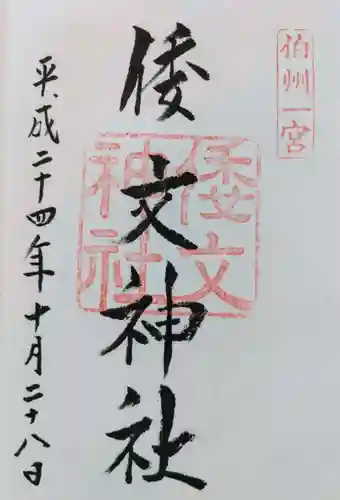 伯州一宮
倭文神社
倭文
神社
平成二十四年十月二十八日